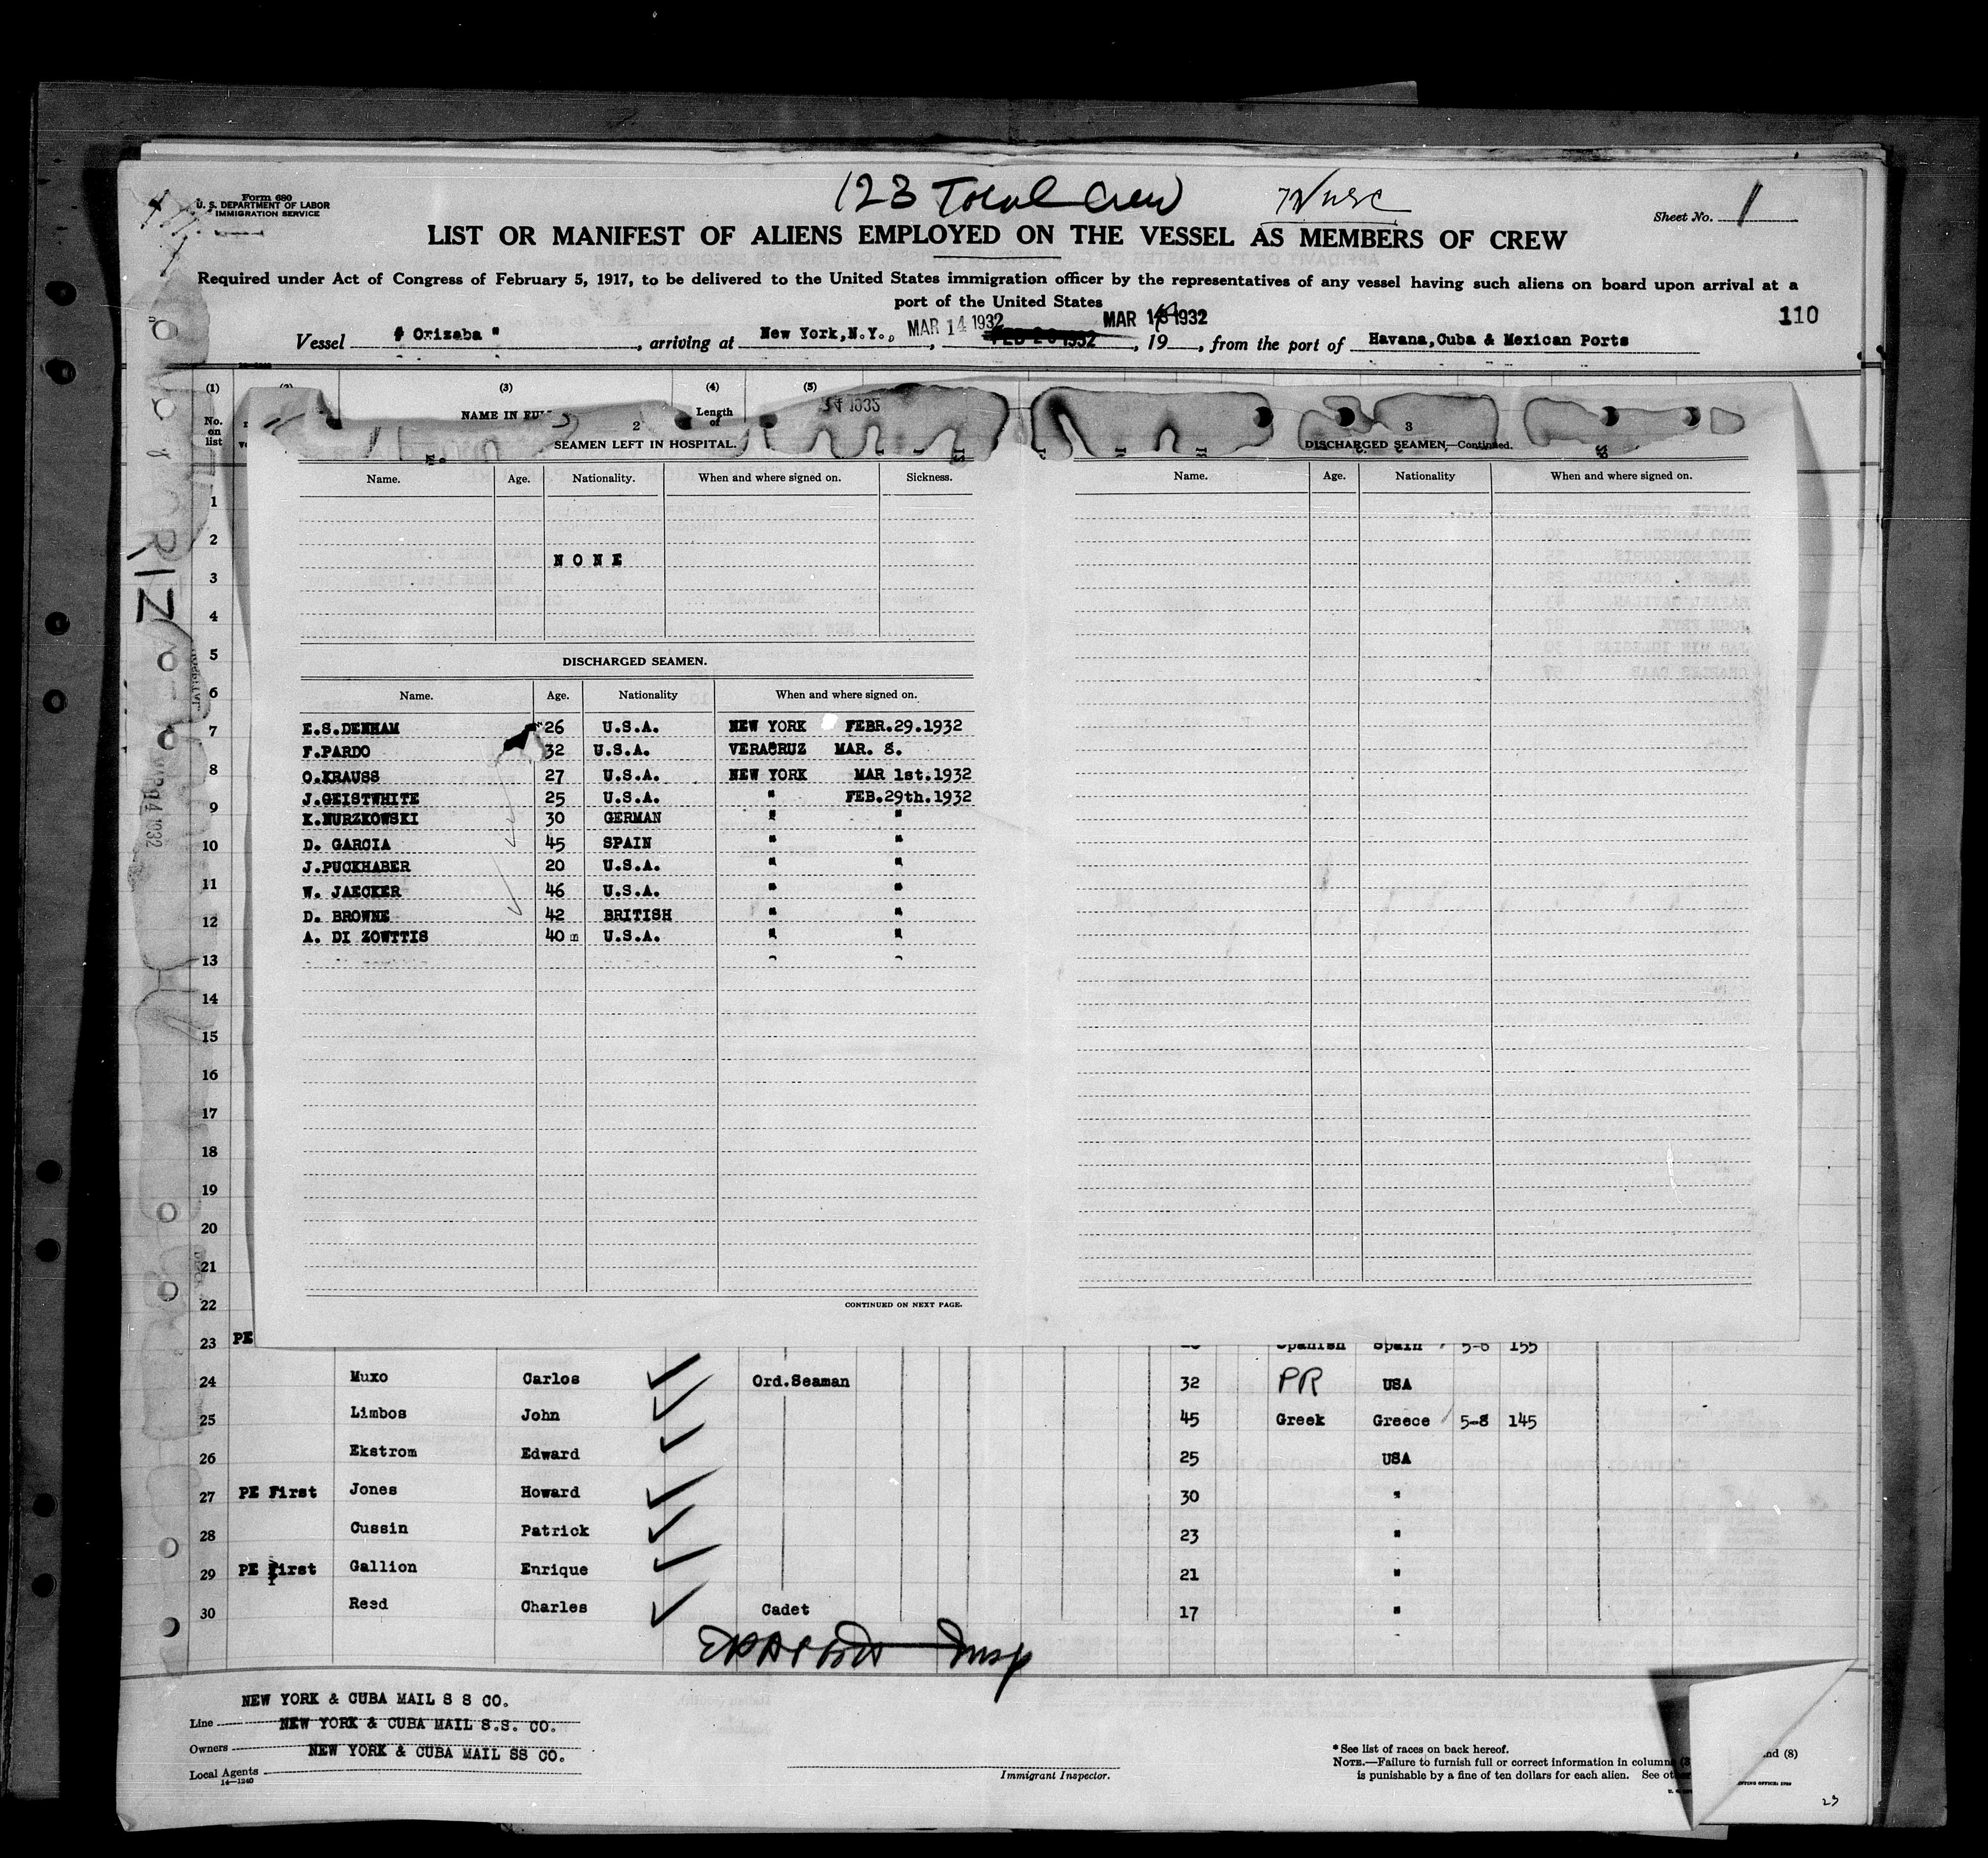 123 Total Crew
Form 680
U. S. DEPARTMENT OF LABOR
IMMIGRATION SERVICE
Sheet No. 1
LIST OR MANIFEST OF ALIENS EMPLOYED ON THE VESSEL AS MEMBERS OF CREW
Required under Act of Congress of February 5, 1917, to be delivered to the United States immigration officer by the representatives of any vessel having such aliens on board upon arrival at a
port of the United States
110
Vessel " Orizaba ", arriving at New York, N.Y., MAR 14 1932, FEB 1932 MAR 1932, 19, from the port of Havana, Cuba & Mexican Ports
(1) (2) (3) (4) (5)
No. on list NAME IN FUL Length of 14 1932
2
SEAMEN LEFT IN HOSPITAL.
Name. Age. Nationality. When and where signed on. Sickness.
NONE
DISCHARGED SEAMEN.
Name. Age. Nationality When and where signed on.
E.S.DENHAM 26 U.S.A. NEW YORK FEBR.29.1932
F.PARDO 32 U.S.A. VERACRUZ MAR. 8.
O.KRAUSS 27 U.S.A. NEW YORK MAR 1st.1932
J.GEISTWHITE 25 U.S.A. " FEB.29th.1932
K.NURZKOWSKI 30 GERMAN " "
D. GARCIA 45 SPAIN " "
J.PUCKHABER 20 U.S.A. " "
W. JAECKER 46 U.S.A. " "
D. BROWNE 42 BRITISH " "
A. DI ZOWTTIS 40 m U.S.A. " "
CONTINUED ON NEXT PAGE.
3
DISCHARGED SEAMEN—Continued.
Name. Age. Nationality When and where signed on.
1
2
3
4
5
6
7
8
9
10
11
12
13
14
15
16
17
18
19
20
21
22
23 PE Spanish Spain 5-6 155
24 Muxo Carlos Ord.Seaman 32 PR USA
25 Limbos John 45 Greek Greece 5-8 145
26 Ekstrom Edward 25 USA
27 PE First Jones Howard 30 "
28 Cussin Patrick 23 "
29 PE First Gallion Enrique 21 "
30 Reed Charles Cadet 17 "
Insp
NEW YORK & CUBA MAIL S S CO.
Line NEW YORK & CUBA MAIL S.S. CO.
Owners NEW YORK & CUBA MAIL SS CO.
Local Agents
14—1240
Immigrant Inspector.
* See list of races on back hereof.
NOTE.—Failure to furnish full or correct information in columns (3 nd (8)
is punishable by a fine of ten dollars for each alien. See ot
23
ORIZ
MAR 14 1932